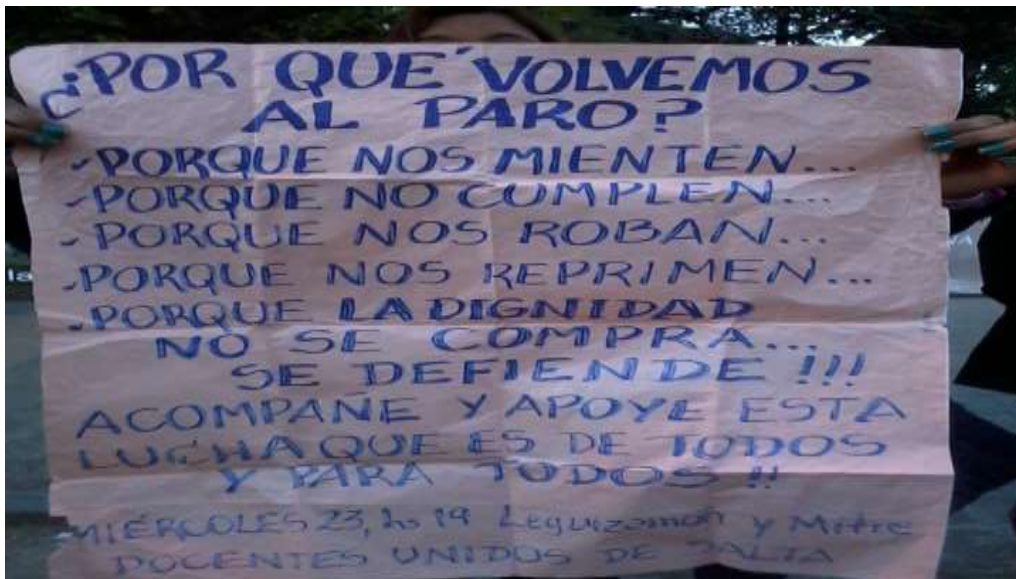 ¿POR QUÉ VOLVEMOS
AL PARO?
-PORQUE NOS MIENTEN...
-PORQUE NO CUMPLEN...
-PORQUE NOS ROBAN...
-PORQUE NOS REPRIMEN...
-PORQUE LA DIGNIDAD
NO SE COMPRA...
SE DEFIENDE !!!
ACOMPAÑE Y APOYE ESTA
LUCHA QUE ES DE TODOS
Y PARA TODOS !!
MIÉRCOLES 23, hs 19 Leguizamón y Mitre
DOCENTES UNIDOS DE SALTA